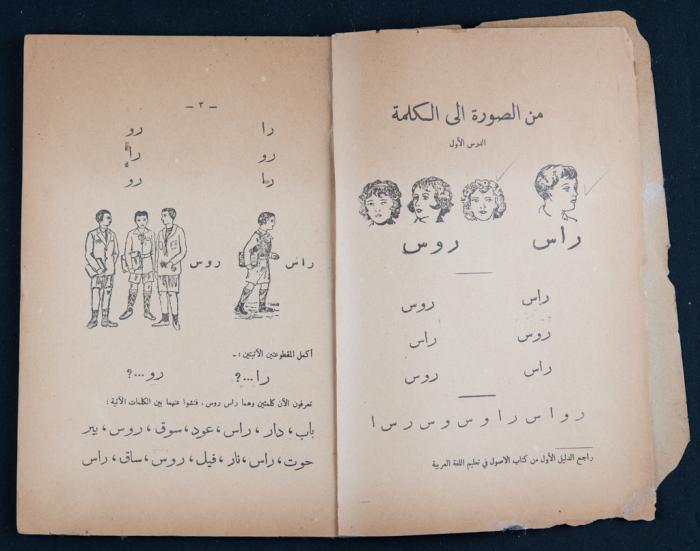 من الصورة الى الكلمة
الدرس الأول
راس روس
راس روس
روس راس
راس روس
ر و ا س ر ا و س و س ر س ا
راجع الدليل الأول من كتاب الاصول في تعليم اللغة العربية
— ٣ —
را رو
رو را
را رو
راس روس
أكمل المقطوعتين الآتيتين :ـ
را...؟ رو...؟
تعرفون الآن كلمتين وهما راس روس، فتشوا عنهما بين الكلمات الآتية :
باب، دار، راس، عود، سوق، روس، بير
حوت، راس، نار، فيل، روس، ساق، راس